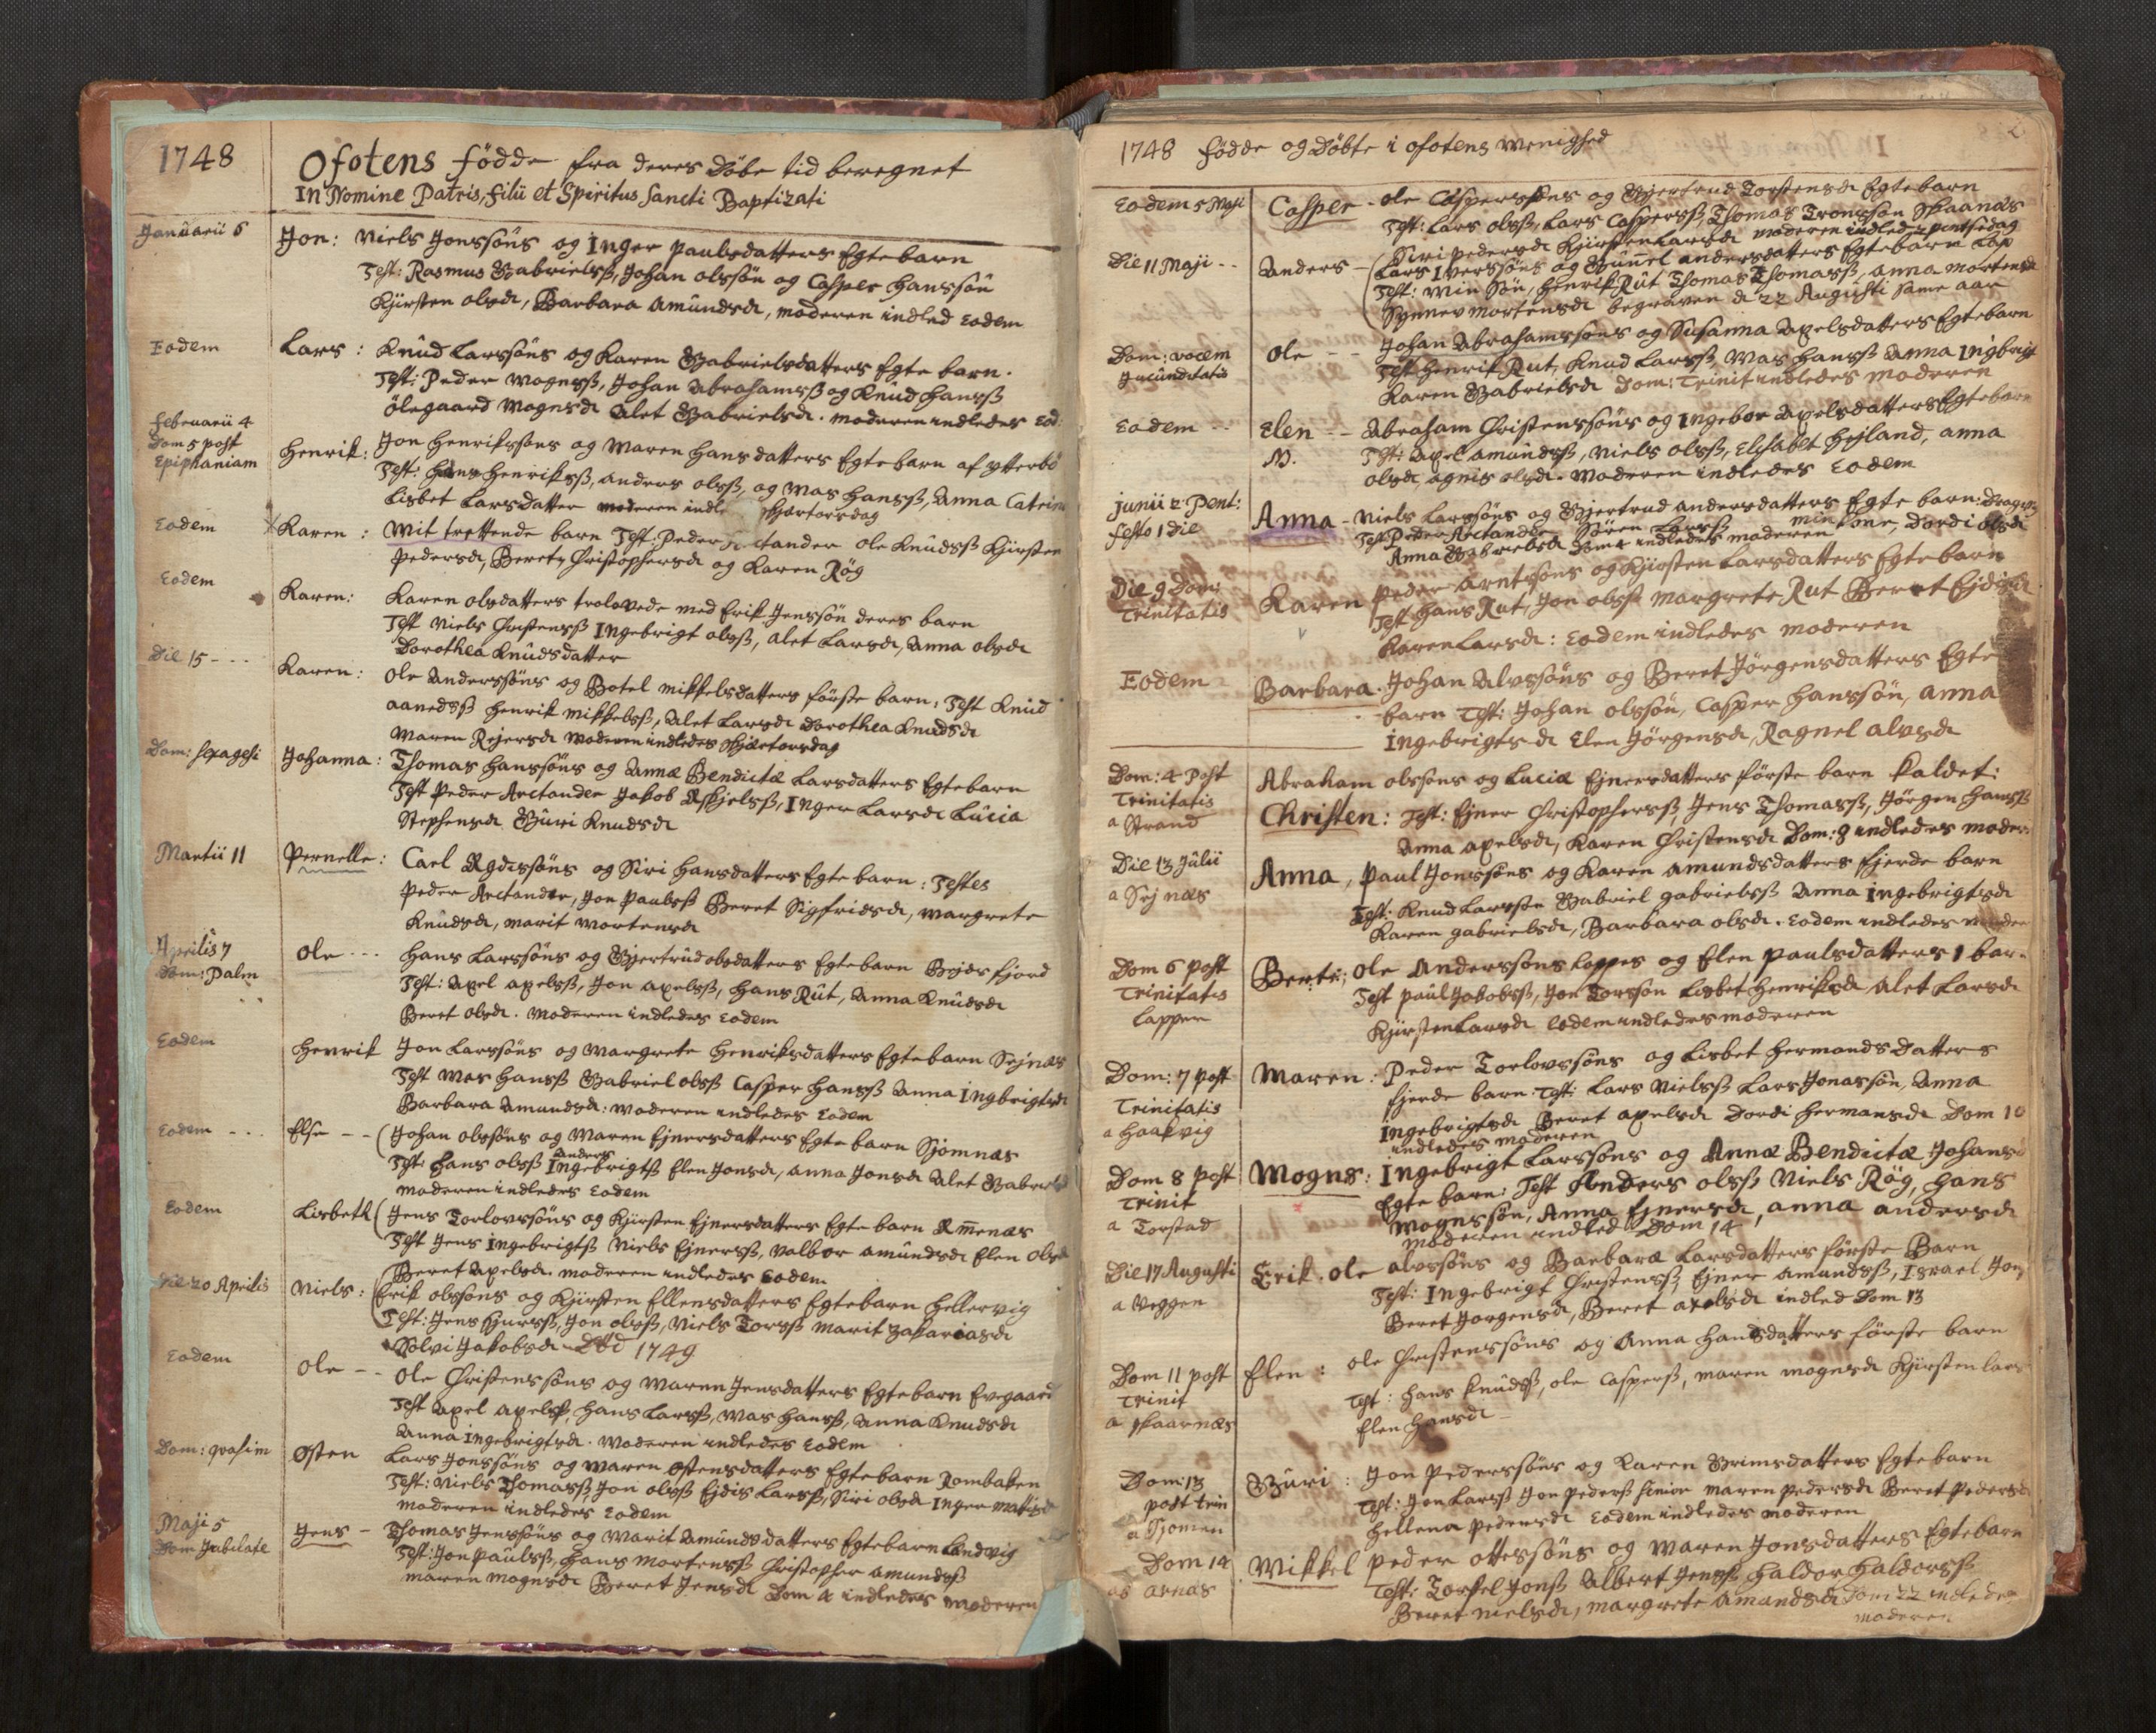 1748
Ofotens födde fra deres Döbe tid beregnet
In Nomine Patris, Filii et Spiritus Sancti Baptizati
Januarii 6
Jon: Niels Jonssöns og Inger Paulsdatters Egtebarn
Test: Rasmus Gabrielsß, Johan olssön og Casper Hanssön
Kjirsten olsdr, Barbara Amundsdr, moderen indled Eodem
Eodem
Lars: Knud Larssöns og Karen Gabrielsdatters Egte barn.
Test: Peder Mognsß, Johan Abrahamsß og Knud Hansß
Ölegaard Mognsdr Alet Gabrielsdr. moderen indledes Eod:
Februarii 4
Dom 5 post
Epiphaniam
Henrik: Jon Henrikssöns og Maren Hansdatters Egtebarn af ytterbö
Test: Hans Henriksß, Anders olsß, og Mas Hansß, Anna Catrin
Lisbet Larsdatter moderen indle skjærtorsdag
Eodem
Karen: Mit trettende barn Test: Peder Arctander ole Knudsß Kjirsten
Pedersdr, Beret Christophersdr og Karen Rög
Eodem
Karen: Karen olsdatters trolovede med Erik Jenssön deres barn
Test Niels Christensß Ingebrigt olsß, Alet Larsdr, Anna olsdr
Dorothea Knudsdatter
Die 15 - - -
Karen: Ole Anderssöns og Botel Mikkelsdatters förste barn: Test Knud
aanedsß Henrik Mikkelsß, Alet Larsdr Dorothea Knudsdr
Maren Rejersdr Moderen indledes skjærtorsdag
Dom: Sexagesi
Johanna: Thomas Hanssöns og Annæ Bendictæ Larsdatters Egtebarn
Test Peder Arctander Jakob Askjelsß, Inger Larsdr Lucia
Stephensdr Guri Knudsdr
Martii 11
Pernelle: Carl Agdessöns og Siri Hansdatters Egtebarn: Testes
Peder Arctander, Jon Paulsß Beret Sigfridsdr, Margrete
Knudsdr, Marit Mortensdr
Aprilis 7
Dom: Palm
Ole - - - Hans Larssöns og Gjertrud olsdatters Egtebarn Bojdsfjord
Test: Axel Axelsß, Jon Axelsß, Hans Rut, Anna Knudsdr
Beret olsdr. Moderen indledes Eodem
Eodem
Henrik Jon Larssöns og Margrete Henriksdatters Egtebarn Sejnæs
Test Mas Hansß Gabriel olsß Casper Hansß Anna Ingbrigtsdr
Barbara Amundsdr: Moderen indledes Eodem
Eodem - - -
Else - - Johan olssöns og Maren Ejnersdatters Egtebarn Sjomnæs
Test: Hans olsß Anders Ingebrigtsß Elen Jonsdr, Anna Jonsdr Alet Gabrielsd
Moderen indledes Eodem
Eodem
Lisbeth Jens Torlovssöns og Kjirsten Ejnersdatters Egtebarn Rmenæs
Test Jens Ingebrigtsß Niels Ejnersß, Valbor Amundsdr Elen olsdr
Beret Axelsdr. moderen indledes Eodem
Die 20 Aprilis
Niels: Erik olssöns og Kjirsten Ellensdatters Egtebarn Hellervig
Test: Jens Sjursß, Jon olsß, Niels Torsß Marit Zakariasdr
Solvi Jakobsdr. död 1749
Eodem
Ole - - Ole Christenssöns og Maren Jensdatters Egtebarn Evegaard
Test Axel Axelsß, Hans Larsß, Mas Hansß, Anna Knudsdr
Anna Ingebrigtsdr. Moderen indledes Eodem
Dom: Qvasim
Østen Lars Jonssöns og Maren Østensdatters Egtebarn Rombaken
Test: Niels Thomasß, Jon olsß Ejdis Larsß, Siri olsdr Inger Mattisdr
moderen indledes Eodem
Maji 5
Dom Jubilate
Jens - Thomas Jenssöns og Marit Amundsdatters Egtebarn Landvig
Test: Jon Paulsß, Hans Mortensß Christopher Amundsß
Maren Mognsdr Beret Jensdr Dom 4 indledes Moderen
2
1748 Födde og Döbte i Ofotens Menighed
Eodem 5 Maji
Casper - Ole Casperssöns og Gjertrud Torstensdr Egtebarn
Test: Lars olsß, Lars Caspersß, Thomas Tronssön Skaanæs
Siri Pedersdr Kjirsten Larsdr moderen indled 2 Pintsedag
Die 11 Maji - -
Anders - Lars Iverssöns og Gunnel Andersdatters Egtebarn Lap
Test: Min Sön, Henrik Rut Thomas Thomasß, Anna Mortensdr
Synnev Mortensdr begraven d 22 Augusti same aar
Dom: vocem
Jucunditatis
Ole - - Johan Abrahamssöns og Susanna Axelsdatters Egtebarn
Test Henrik Rut, Knud Larsß, Mas Hansß Anna Ingbrigt
Karen Gabrielsdr Dom: Trinit indledes Moderen
Eodem - -
Elen - - Abraham Christenssöns og Ingebor Axelsdatters Egtebarn
N. Test: Axel Amundsß, Niels olsß, Elisabet Hejland, Anna
olsdr, Agnis olsdr. Moderen indledes Eodem
Junii 2 Pent:
Festo 1 Die
Anna - Niels Larssöns og Gjertrud Andersdatters Egte barn: Dragvig
Test Peder Arctander Sören Larsß min kone, Dordi olsdr
Anna Gabrielsdr Dom 4 indledes moderen
Die 9 Dom
Trinitatis
Karen Peder Arntssöns og Kjirsten Larsdatters Egtebarn
Test Hans Rut, Jon olsß Margrete Rut Beret Ejdisdr
Karen Larsdr: Eodem indledes moderen
Eodem
Barbara. Johan Alvssöns og Beret Jörgensdatters Egte
barn Test: Johan olssön, Casper Hanssön, Anna
Ingebrigtsdr Elen Jörgensdr, Ragnel Alvsdr
Dom: 4 Post
Trinitatis
a Strand
Abraham olssöns og Luciæ Ejnersdatters förste barn kaldet:
Christen: Test: Ejner Christophersß, Jens Thomasß, Jörgen Hansß
Anna Axelsdr, Karen Christensdr Dom: 8 indledes moder:
Die 13 Julii
a Sejnæs
Anna, Paul Jonssöns og Karen Amundsdatters fjerde barn
Test: Knud Larssön Gabriel Gabrielsß Anna Ingebrigtsdr
Karen Gabrielsdr, Barbara olsdr. Eodem indledes moder
Dom 6 post
Trinitatis
Lapper
Berte; Ole Anderssöns Lappes og Elen Paulsdatters 1 bar-
Test Paul Jakobsß, Jon Torssön Lisbet Henriksdr Alet Larsdr
Kjirsten Larsdr Eodem indledes moderen
Dom: 7 post
Trinitatis
a Haakvig
Maren: Peder Torlovssöns og Lisbet Hermansdatters
fjerde barn. Test: Lars Nielsß Lars Jonassön, Anna
Ingebrigtsdr Beret Axelsdr Dordi Hermansdr Dom 10
indledes moderen
Dom 8 post
Trinit
a Torstad
Mogns: Ingebrigt Larssöns og Annæ Bendictæ Johansd
Egte barn: Test Anders olsß Niels Rög, Hans
Mognssön, Anna Ejnersdr, Anna Andersdr
Moderen indled Dom 14
Die 17 Augusti
a Veggen
Erik. Ole Alvssöns og Barbaræ Larsdatters förste Barn
Test: Ingebrigt Christensß, Ejner Amundsß, Israel Jonß
Beret Jorgensdr, Beret Axelsdr indled Dom 13
Dom 11 post
Trinit
a Skaarnæs
Elen: Ole Christenssöns og Anna Hansdatters förste barn
Test: Hans Knudsß, ole Caspersß, Maren Mognsdr Kjirsten Lars
Elen Hansdr
Dom: 13
post trin
a Sjomen
Guri: Jon Pederssöns og Karen Grimsdatters Egtebarn
Test: Jon Larsß Jon Pedersß senior Maren Pedersdr Beret Pedersdr
Hellena Pedersdr Eodem indledes moderen
Dom 14
Arnæs
Mikkel Peder Ottessöns og Maren Jonsdatters Egtebarn
Test: Torkel Jonsß Albert Jensß Haldor Haldorsß
Beret Nielsdr, Margrete Amundsdr Dom 22 indledes
moderen